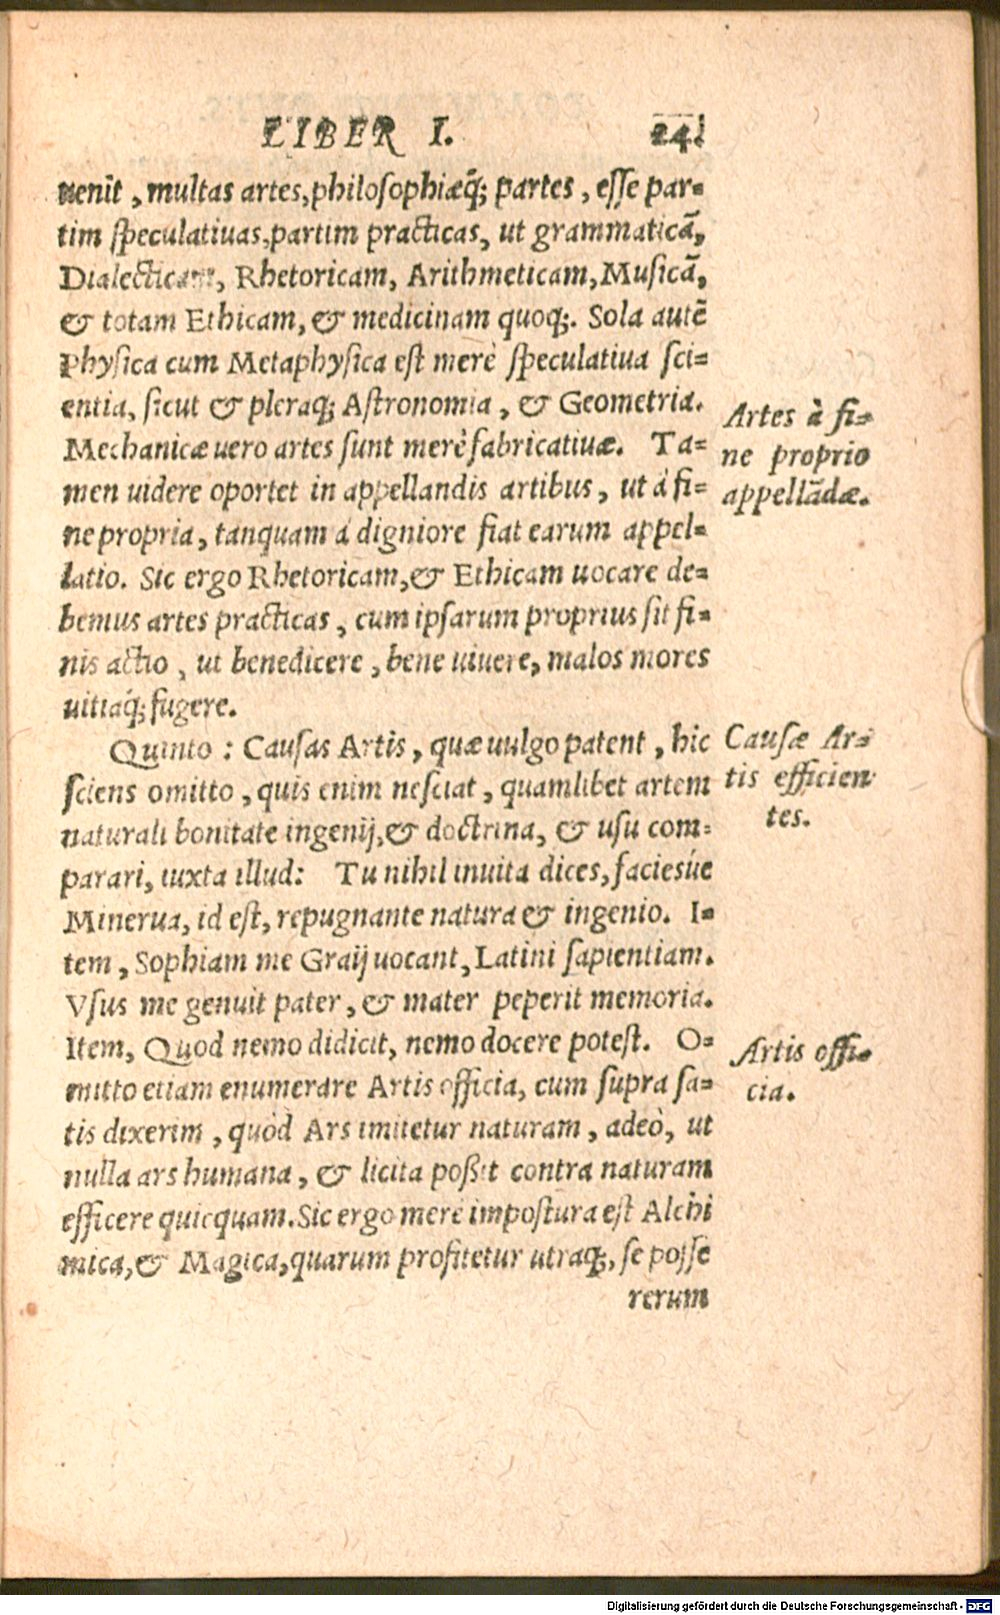 LIBER I. 24.
uenit, multas artes, philosophiæq́; partes, esse par=
tim speculatiuas, partim practicas, ut grammaticā,
Dialecticam, Rhetoricam, Arithmeticam, Musicā,
& totam Ethicam, & medicinam quoq;. Sola autē
Physica cum Metaphysica est merè speculatiua sci=
entia, sicut & pleraq; Astronomia, & Geometria.
Mechanicæ uero artes sunt merè fabricatiuæ. Ta=
men uidere oportet in appellandis artibus, ut à fi=
ne propria, tanquam á digniore fiat earum appel=
latio. Sic ergo Rhetoricam, & Ethicam uocare de=
bemus artes practicas, cum ipsarum proprius sit fi=
nis actio, ut benedicere, bene uiuere, malos mores
uitiaq́; fugere.
Artes à fi=
ne proprio
appellādæ.
Quinto: Causas Artis, quæ uulgo patent, hic
sciens omitto, quis enim nesciat, quamlibet artem
naturali bonitate ingenij, & doctrina, & usu com=
parari, iuxta illud: Tu nihil inuita dices, faciesúe
Minerua, id est, repugnante natura & ingenio. I=
tem, Sophiam me Graij uocant, Latini sapientiam.
Vsus me genuit pater, & mater peperit memoria.
Item, Quod nemo didicit, nemo docere potest. O=
mitto etiam enumerare Artis officia, cum supra sa=
tis dixerim, quòd Ars imitetur naturam, adeò, ut
nulla ars humana, & licita poßit contra naturam
efficere quicquam. Sic ergo merè impostura est Alchi
mica, & Magica, quarum profitetur utraq;, se posse
rerum
Causæ Ar=
tis efficien
tes.
Artis offi=
cia.
Digitalisierung gefördert durch die Deutsche Forschungsgemeinschaft - DFG